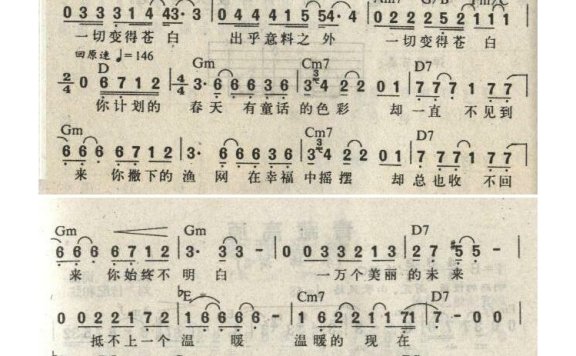 Am7 G/B Fm/C
0 3 3 3 1 4 3 43· 3 | 0 4 4 4 1 5 54· 4 - | 0 2 2 2 5 2 1 2 2
一切变得苍白 出乎意料之外 一切变得苍白
回原速 ♩=146
D Gm Cm7 D7
2/4 0 6 7 1 2 | 4/4 3· 6 6 6 3 6 | 3 4 2 2 0 1 | 7 7 7 1 7 7
你计划的 春天 有童话的色彩 却一直 不见到
Gm Cm7 D7
6 6 6 6 7 1 2 | 3· 6 6 6 3 6 | 3 4 2 2 0 1 | 7 7 7 1 7 7
来 你撒下的渔 网在幸福中摇摆 却总也收 不回
Gm Gm D7
6 6 6 6 7 1 2 | 3· 3 3 - | 0 0 3 3 2 1 3 | 2 7 5 5 -
来 你始终不 明白 一万个美丽的未来
♭E Cm7 D7
0 2 2 2 1 7 1 2 | 1 6 6 6 6 | 1 6 2 2 2 1 71 | 2 - 0 0
抵不上一个 温 暖 温暖的现在